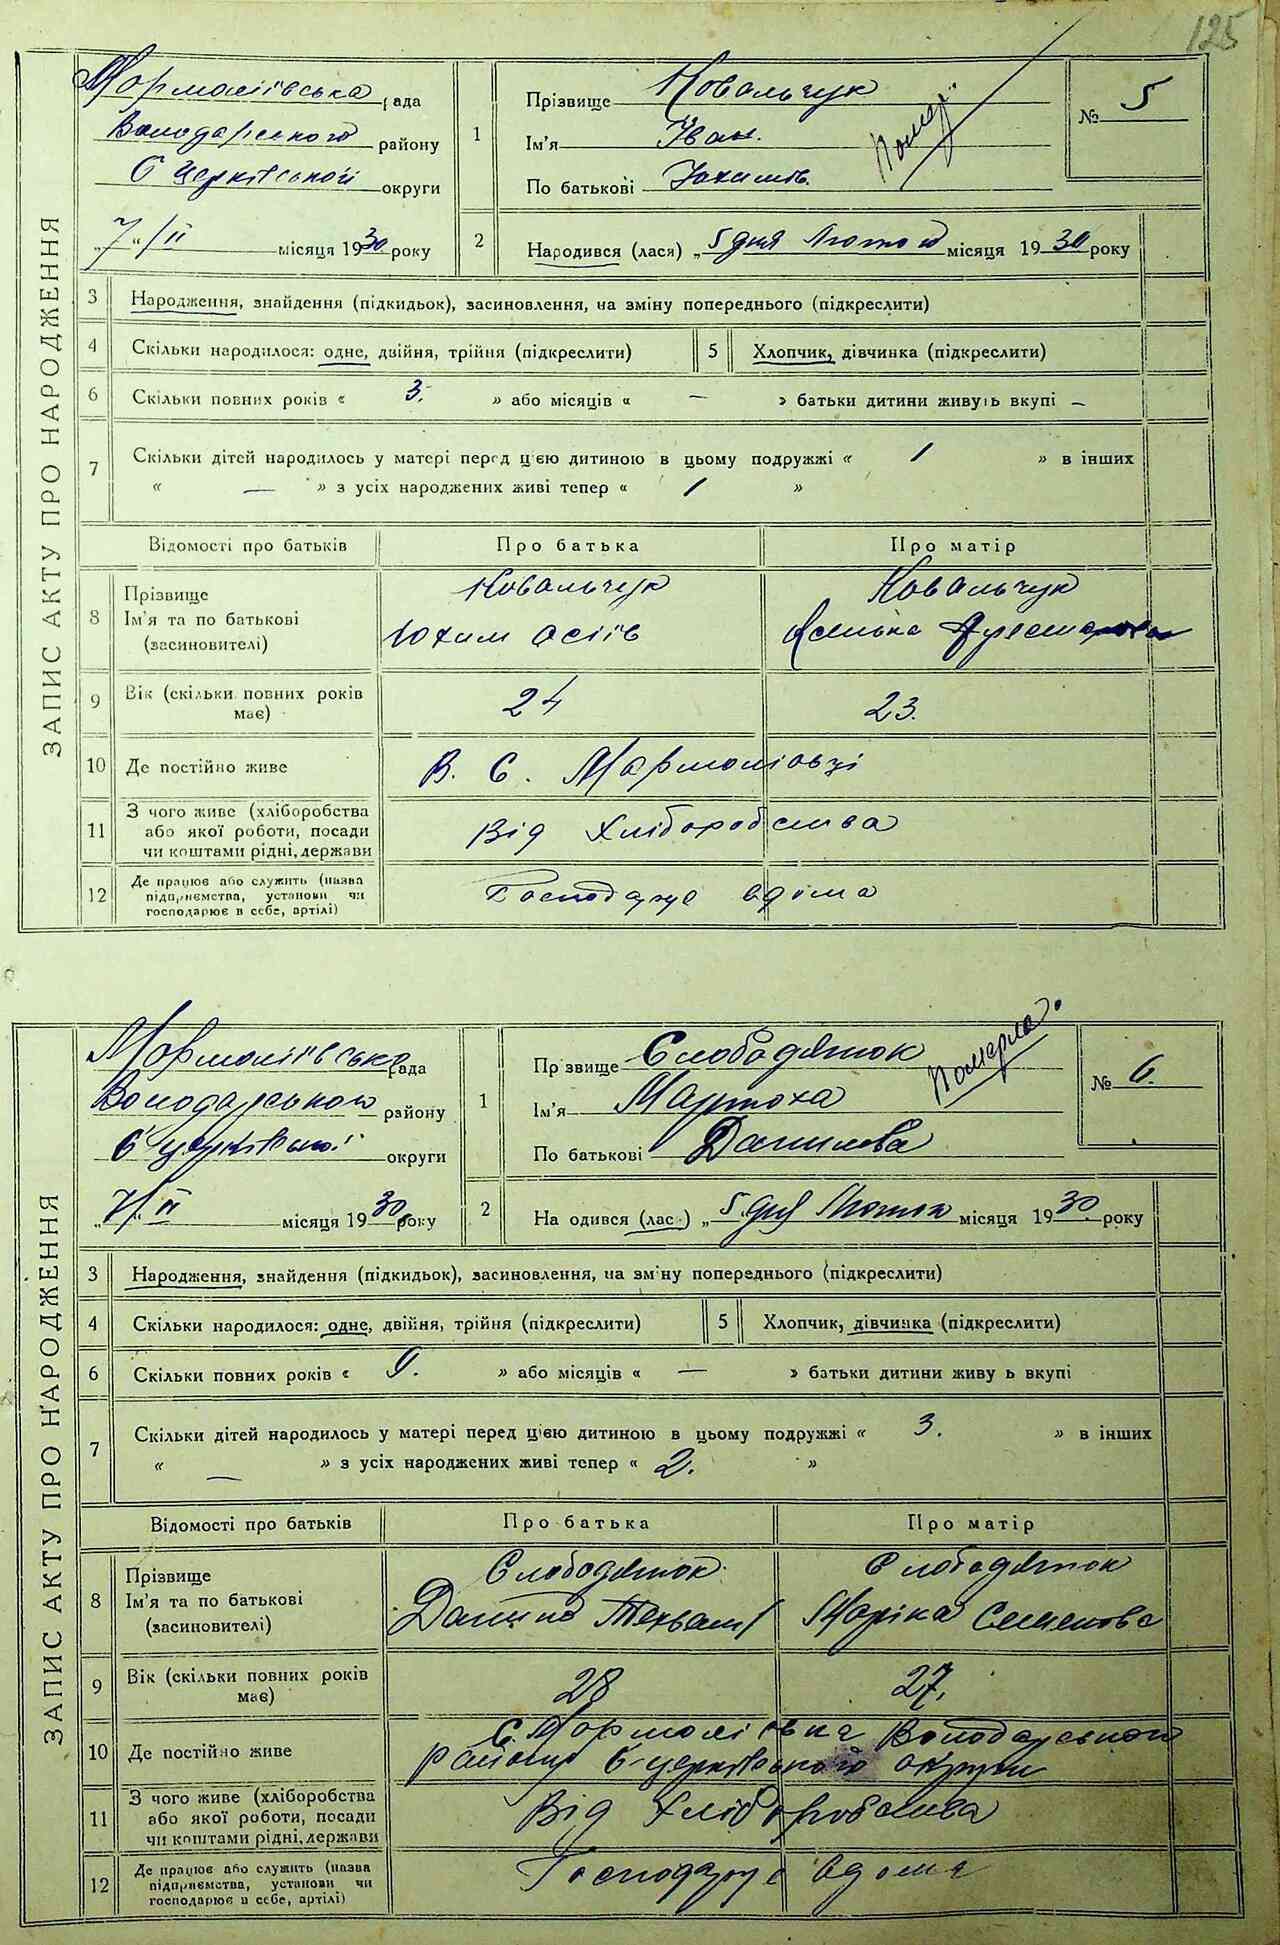 125
ЗАПИС АКТУ ПРО НАРОДЖЕННЯ
Мармоліївська рада
Володарського району
Б Церківської округи
„7“/II місяця 1930 року
1
Прізвище Ковальчук
Ім'я Іван.
По батькові Юхимів.
Помер.
№ 5
2
Народився (лася) „5 дня Лютого місяця 1930 року
3 Народження, знайдення (підкидьок), засиновлення, на зміну попереднього (підкреслити)
4 Скільки народилося: одне, двійня, трійня (підкреслити) 5 Хлопчик, дівчинка (підкреслити)
6 Скільки повних років « 3. » або місяців « — » батьки дитини живуть вкупі —
7 Скільки дітей народилось у матері перед цією дитиною в цьому подружжі « 1 » в інших
« — » з усіх народжених живі тепер « 1 »
Відомості про батьків Про батька Про матір
8 Прізвище Ковальчук Ковальчук
Ім'я та по батькові Юхим
(засиновителі)
9 Вік (скільки повних років має) 24 23.
10 Де постійно живе В. С. Мармоліовці
11 З чого живе (хліборобства
або якої роботи, посади Від Хліборобства
чи коштами рідні, держави
12 Де працює або служить (назва
підприємства, установи чи Господарує вдома
господарює в себе, артілі)
ЗАПИС АКТУ ПРО НАРОДЖЕННЯ
Мармоліївська рада
Володарського району
Б Церківської округи
„7“/II місяця 1930 року
1
Прізвище Слободянюк
Ім'я
По батькові Данилова
Померла.
№ 6.
2
Народився (лась) „5 дня Лютого місяця 1930. року
3 Народження, знайдення (підкидьок), засиновлення, на зміну попереднього (підкреслити)
4 Скільки народилося: одне, двійня, трійня (підкреслити) 5 Хлопчик, дівчинка (підкреслити)
6 Скільки повних років « 9. » або місяців « — » батьки дитини живуть вкупі
7 Скільки дітей народилось у матері перед цією дитиною в цьому подружжі « 3. » в інших
« — » з усіх народжених живі тепер « 2. »
Відомості про батьків Про батька Про матір
8 Прізвище Слободянюк Слободянюк
Ім'я та по батькові Данило Маріка Семенова
(засиновителі)
9 Вік (скільки повних років має) 28 27.
10 Де постійно живе С. Мармоліовка Володарського
району Б-церківського округи
11 З чого живе (хліборобства
або якої роботи, посади Від Хліборобства
чи коштами рідні, держави
12 Де працює або служить (назва
підприємства, установи чи Господарує вдома
господарює в себе, артілі)